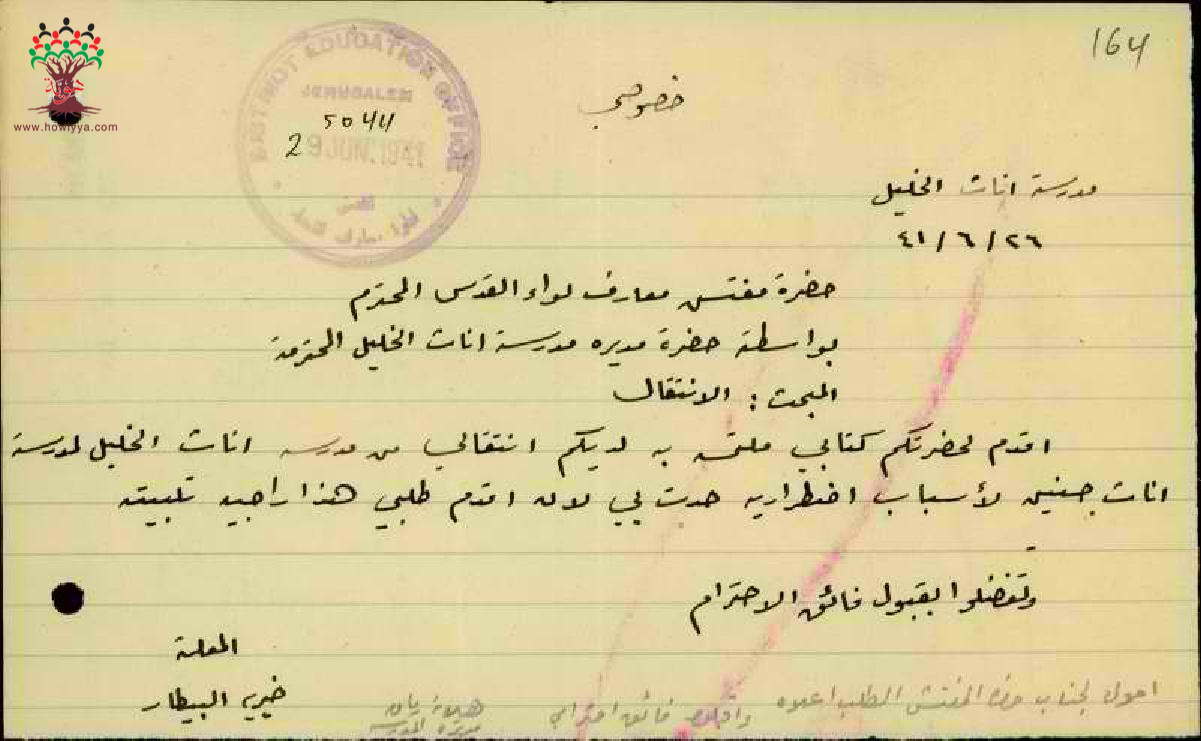 164
خصوصي
DISTRICT EDUCATION OFFICE
JERUSALEM
5044
29 JUN. 1941
القدس
www.howiyya.com
مدرسة اناث الخليل
٢٦ / ٦ / ٤١
حضرة مفتش معارف لواء القدس المحترم
بواسطة حضرة مديره مدرسة اناث الخليل المحترمة
المبحث : الانتقال
اقدم لحضرتكم كتابي ملتمسة به لديكم انتقالي من مدرسه اناث الخليل لمدرسة
اناث جنين لأسباب اضطراريه حدت بي لان اقدم طلبي هذا راجيه تلبيته
وتفضلوا بقبول فائق الاحترام
المعلمة
خيريه البيطار
احول لجناب حضرة المفتش الطلب اعلاه واقبلوا فائق احترامي
مديرة المدرسة